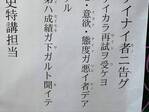 ナイ者ニ告グ
カラ再試ヲ受ケヨ
・意欲、態度ガ悪イ者デア
ル
ハ成績ガ下ガルト聞イテ
史特講担当